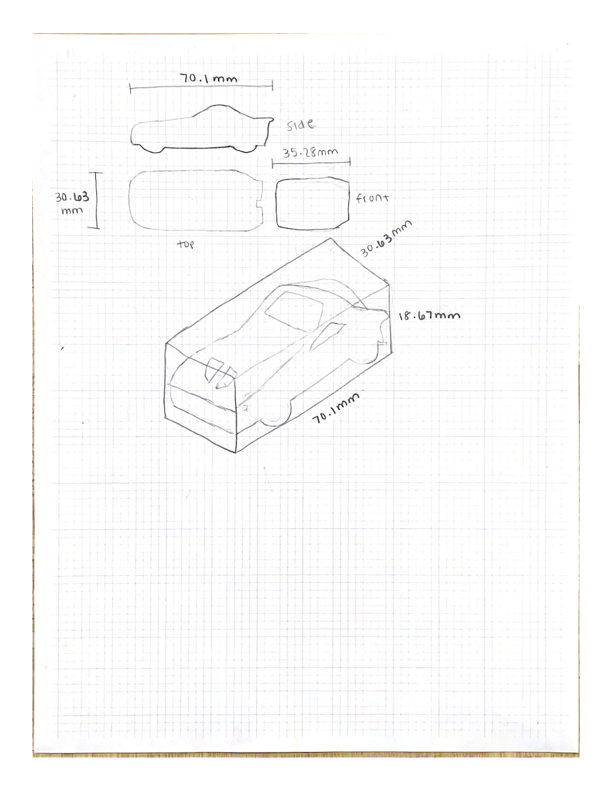 70.1 mm
side
35.28mm
30.63
mm
front
top
30.63mm
18.67mm
70.1mm